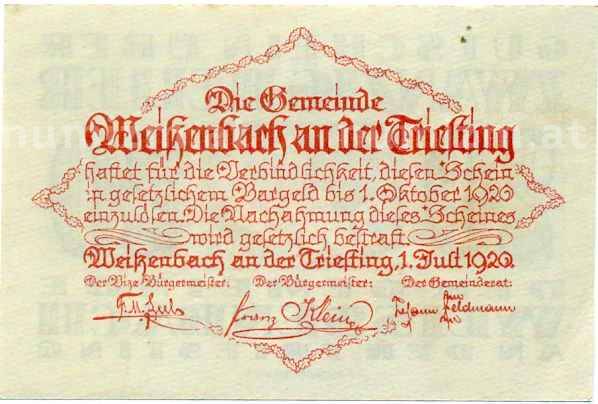 Die Gemeinde
Weißenbach an der Triesting
haftet für die Verbindlichkeit, diesen Schein
in gesetzlichem Bargeld bis 1. Oktober 1920
einzulösen. Die Nachahmung dieses Scheines
wird gesetzlich bestraft.
Weißenbach an der Triesting, 1. Juli 1920.
Der Vize Bürgermeister: Der Bürgermeister: Der Gemeinderat:
Franz Klein Johann Feldmann